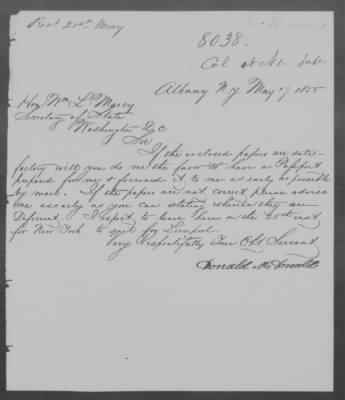 Recd 21st May
8038.
Col at New York
Albany N.Y May 17 1855
Hon Wm L. Marcy
Secretary of State
Washington D.C
Sir
If the enclosed papers are satis-
factory will you do me the favor to have a Passport
prepared for me & forward it to me as early as possible
by mail. If the papers are not correct please advise
me as early as you can stating wherein they are
Deficient. I expect to leave here on the 25th inst
for New York to sail for Liverpool.
Very Respectfully Your Obt Servant
Donald McDonald